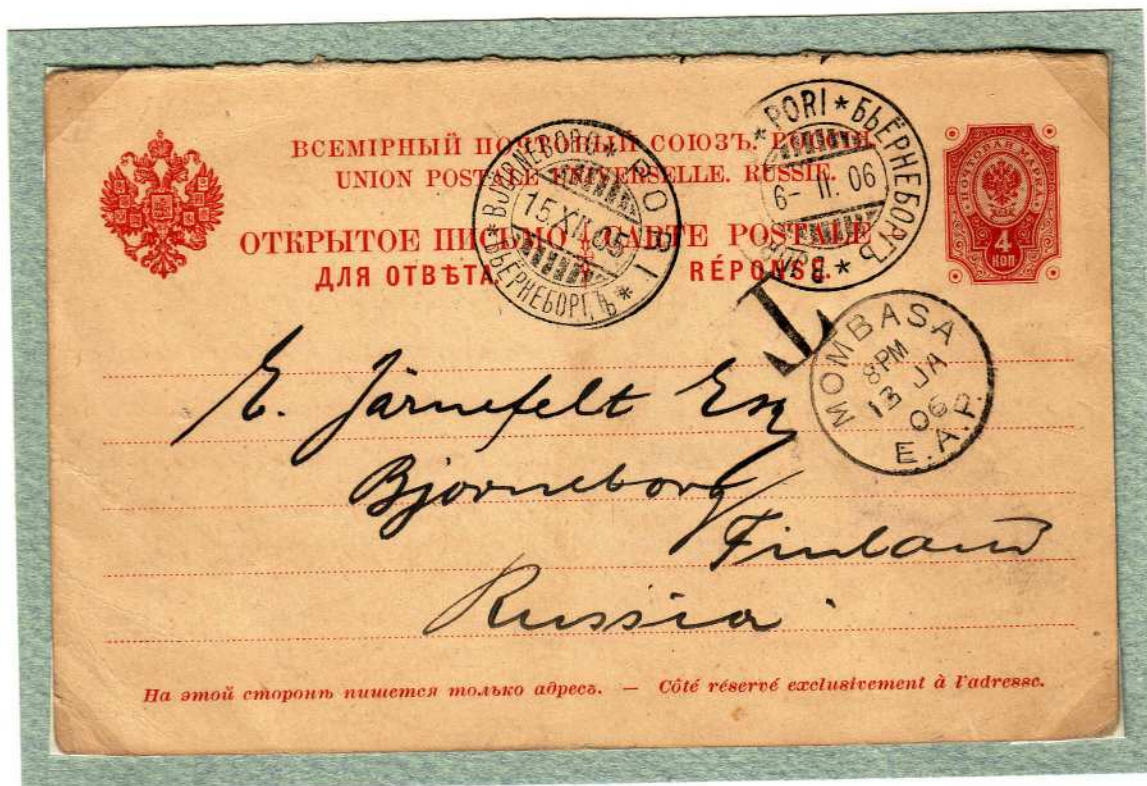 ВСЕМІРНЫЙ ПОЧТОВЫЙ СОЮЗЪ. РОССІЯ.
UNION POSTALE UNIVERSELLE. RUSSIE.
ОТКРЫТОЕ ПИСЬМО - CARTE POSTALE
ДЛЯ ОТВѢТА. RÉPONSE.
BJÖRNEBORG * PORI * БЬЁРНЕБОРГЪ *
15.XII.05
* PORI * БЬЁРНЕБОРГЪ *
6- II. 06
ПОЧТОВАЯ МАРКА
4
КОП
T
MOMBASA
8PM
13 JA
06
E.A.P.
E. Järnefelt Esq
Björneborg
Finland
Russia
На этой сторонѣ пишется только адресъ. — Côté réservé exclusivement à l'adresse.